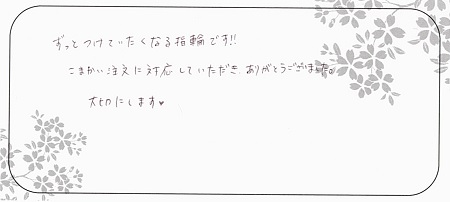 ずっとつけていたくなる指輪です!!
こまかい注文に対応していただき、ありがとうございました。
大切にします♥